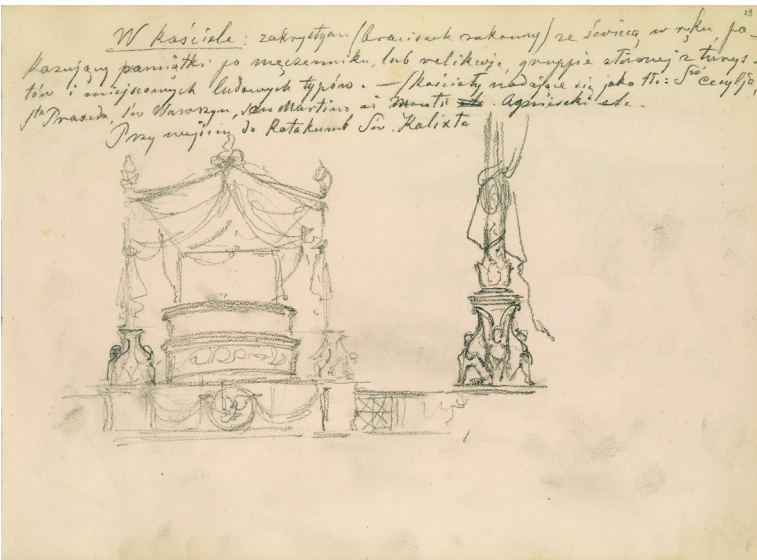 29
W kościele: zakrystyan (braciszek zakonny) ze świecą w ręku, po=
kazujący pamiątki po męczenniku, lub relikwje, gruppie złożonej z turys=
tów i miejscowych ludowych typów. — Kościoły nadające się jako tło: Sta Cecylja,
sta Praxeda, Św Wawrzyn, San Martino ai Monti . Agnieszki etc.
Przy wejściu do Katakumb Św. Kalixta